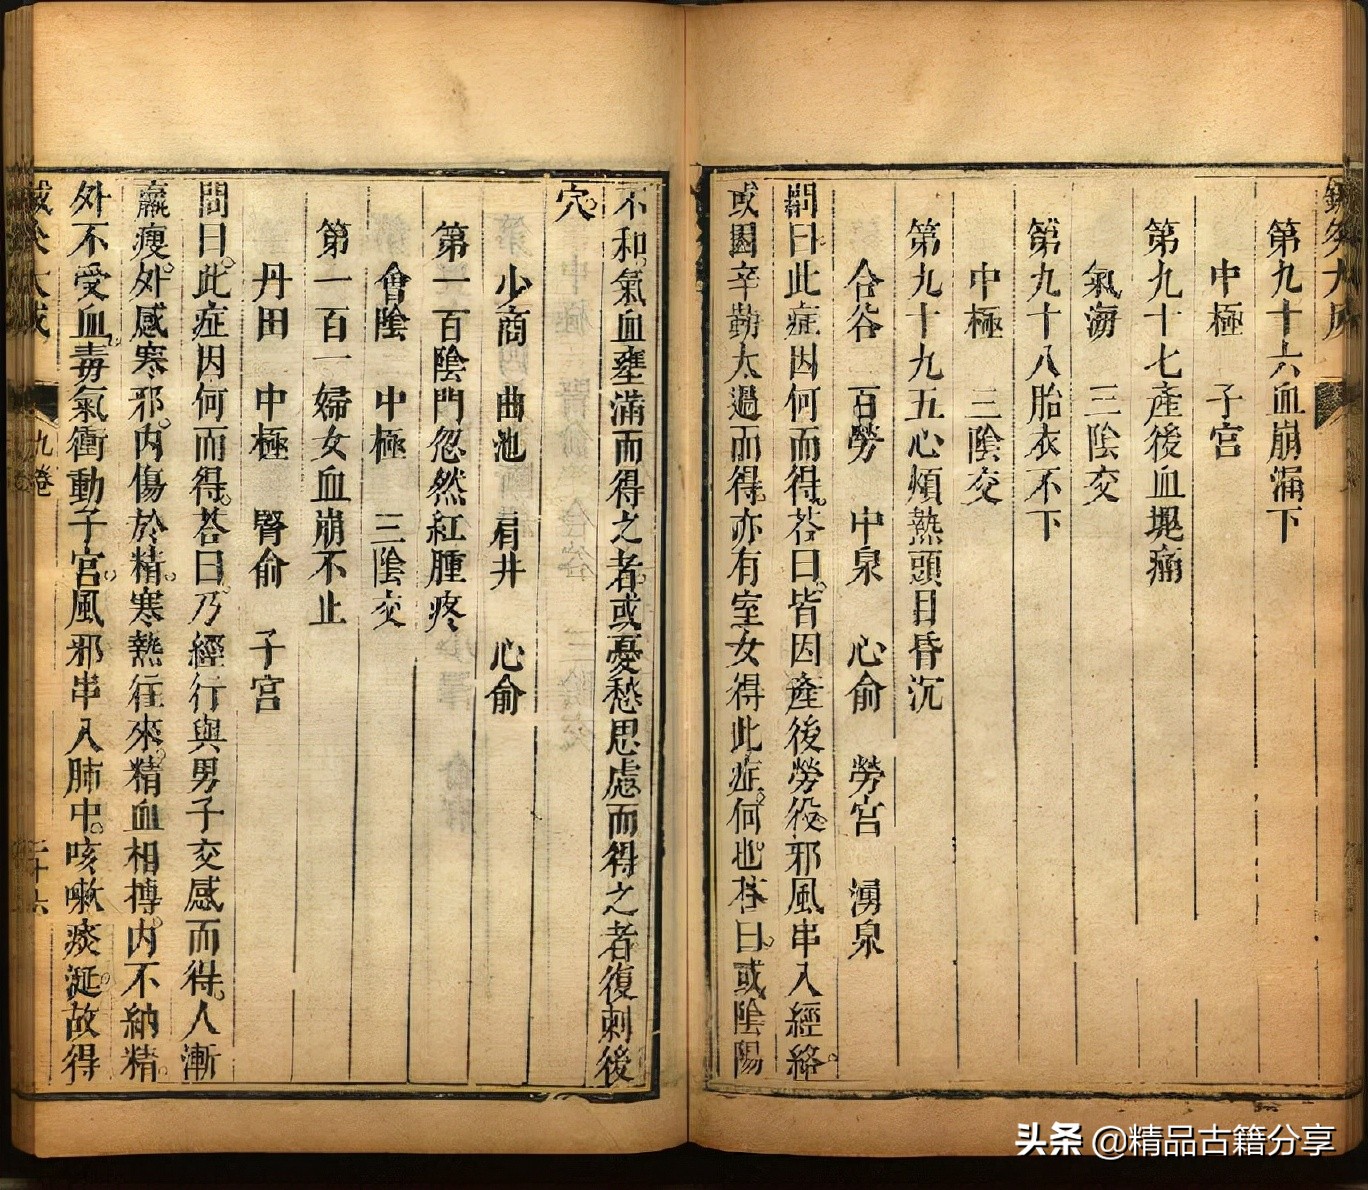 鍼灸大成
第九十六血崩漏下
中極　子宮
第九十七產後血塊痛
氣海　三陰交
第九十八胎衣不下
中極　三陰交
第九十九五心煩熱頭目昏沉
合谷　百勞　中泉　心俞　勞宮　湧泉
問曰此症因何而得。荅曰。皆因產後勞役。邪風串入經絡。
或因辛勤太過而得。亦有室女得此症。何也。荅曰。或陰陽
不和。氣血壅滿而得之者。或憂愁思慮而得之者。復刺後
穴。
少商　曲池　肩井　心俞
第一百陰門忽然紅腫疼
會陰　中極　三陰交
第一百一婦女血崩不止
丹田　中極　腎俞　子宮
問曰。此症因何而得。荅曰。乃經行與男子交感而得。人漸
羸瘦。外感寒邪。內傷於精。寒熱往來。精血相搏。內不納精。
外不受血。毒氣衝動子宮。風邪串入肺中。咳嗽痰涎。故得
鍼灸大成　九卷　二十六
头条 @精品古籍分享